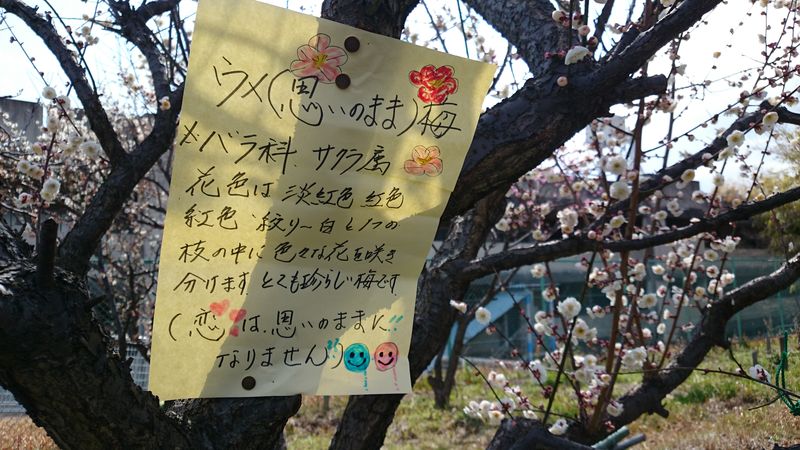 ウメ(思いのまま)梅
バラ科 サクラ属
花色は 淡紅色 紅色
紅色 絞り〜白と1つの
枝の中に色々な花を咲き
分けます とても珍らしい梅です
(恋は思いのままに!!
なりません!!)